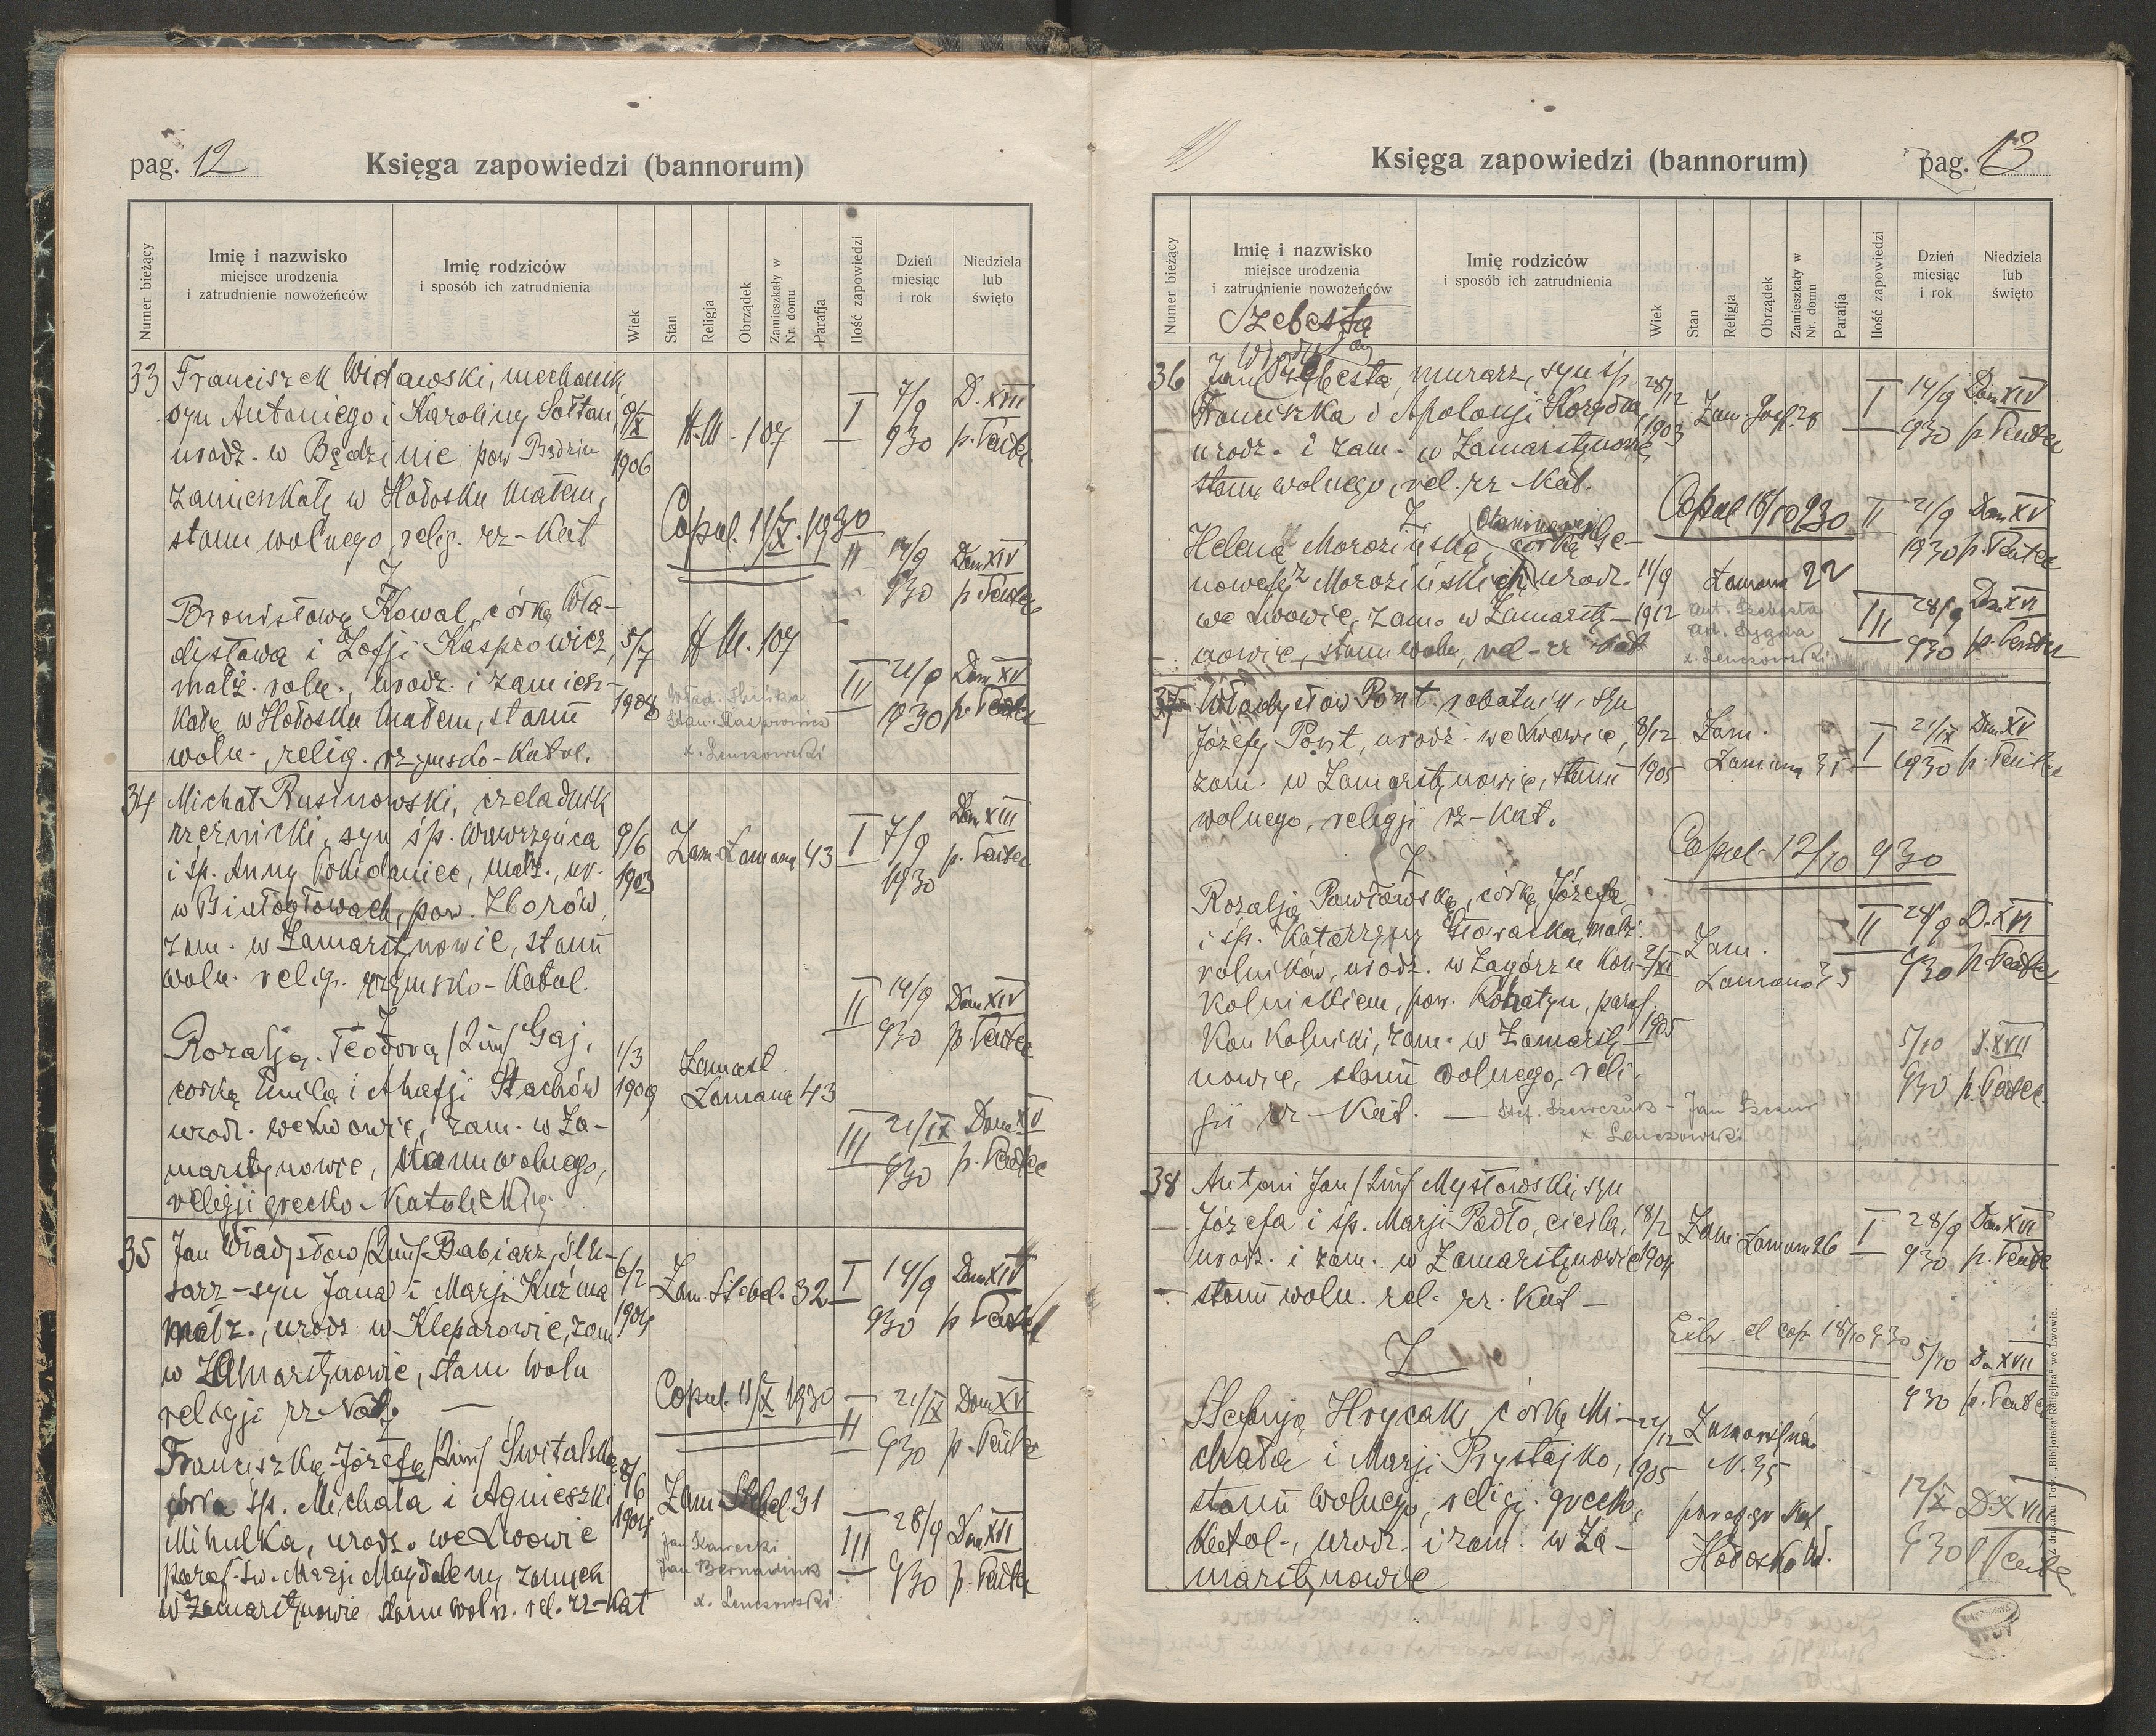 pag. 12
Księga zapowiedzi (bannorum)
Numer bieżący
Imię i nazwisko
miejsce urodzenia
i zatrudnienie nowożeńców
Imię rodziców
i sposób ich zatrudnienia
Wiek
Stan
Religja
Obrządek
Zamieszkały w
Nr. domu
Parafja
Ilość zapowiedzi
Dzień
miesiąc
i rok
Niedziela
lub
święto
33 Franciszek Widawski, mechanik
syn Antoniego i Karoliny Sołtan, 9/X H.M. 107 I 7/9 D. XIII
urodz. w Będzinie pow Będzin 1906 930 p. Pentec.
zamieszkały w Hołosku Małem,
stanu wolnego, relig. rz-kat Copul. 11/X. 1930
Z II 14/9 Dom XIV
Bronisławę Kowal, córkę Wła- 930 p. Pentec
dysława i Zofji Kasprowicz, 5/7 H M. 107
małż. roln., urodz. i zamiesz- 1908 III 21/9 Dom XV
kałę w Hołosku Małem, stanu 1930 p. Pentec
woln., relig. rzymsko-katol. x. Lenczowski
34 Michał Rusinowski, czeladnik Dom XIII
rzeźnicki, syn śp. Wawrzyńca 9/6 Zam. Łamana 43 I 7/9 p. Pentec
i śp. Anny małż., ur. 1903 1930
w Białogłowach, pow. Zborów,
zam. w Zamarstynowie, stanu
woln. relig. rzymsko-katol. II 14/9 Dom XIV
Z 930 p. Pentec
Rozalją Teodorą /2 im/ Gaj, 1/3 Zamarst.
córką Emila i Ahafji Stachów 1909 Łamana 43
urodz. we Lwowie, zam. w Za- III 21/IX Dom XV
marstynowie, stanu wolnego, 930 p. Pentec
religji grecko-katolickiej.
35 Jan Władysław /2 im/ Babiarz, ślu-
sarz - syn Jana i Marji Kuźma 6/2 Zam. Stebel. 32 I 14/9 Dom XIV
małż., urodz w Kleparowie, zam 1904 930 p Pentec
w Zamarstynowie, stanu woln
religji rz-kat. — Copul. 11/X 1930 II 21/IX Dom XV
Z 930 p. Pentec
Franciszkę-Józefę /2 im/ Świtalską 8/6
córka śp. Michała i Agnieszki 1904 Zam. Stebel 31
Mihulka, urodz. we Lwowie III 28/9 Dom XVI
paraf. św. Marji Magdaleny zamieszk Jan Kawecki 930 p. Pentec
w Zamarstynowie stanu woln. rel. rz-kat x. Lenczowski
Księga zapowiedzi (bannorum)
pag. 13
Numer bieżący
Imię i nazwisko
miejsce urodzenia
i zatrudnienie nowożeńców
Imię rodziców
i sposób ich zatrudnienia
Wiek
Stan
Religja
Obrządek
Zamieszkały w
Nr. domu
Parafja
Ilość zapowiedzi
Dzień
miesiąc
i rok
Niedziela
lub
święto
Szebesta
36 Jan Szebesta, murarz, syn śp. 28/12
Franciszka i Apolonji 1903 Zam. 28 I 14/9 Dom XIV
urodz. i zam. w Zamarstynowie, 930 p Pentec
stanu wolnego, rel. rz-kat.
Z Copul 18/10 930 II 21/9 Dom XV
Heleną Morozińską, córką Ge- 1930 p. Pentec
nowefy z Morozińskich urodz. 11/9 Łamana 22
we Lwowie, zam. w Zamarsty- 1912 Ant. Szebesta III 28/9 Dom XVI
nowie, stanu woln, rel-rz kat x. Lenczowski 930 p. Pentec
37 Władysław Pont robotnik, syn
Józefy Pont, urodz. we Lwowie, 8/12 Zam. I 21/IX Dom XV
zam. w Zamarstynowie, stanu 1905 Łamana 35 1930 p. Pentec
wolnego, religji rz-kat.
Z Copul. 12/10 930
Rozalją Pawłowską, córkę Józefa
i śp. Katarzyny Głowacka, małż. II 28/9 D. XVI
rolników, urodz. w Zagórzu Kon- 2/XI Zam. Łamana 35 930 p. Pentec
kolnickiem, pow. Rohatyn, paraf.
Konkolniki, zam. w Zamarsty- 1905 5/10 D. XVII
nowie, stanu wolnego, reli- 930 p. Pentec.
gji rz-kat. — Stef. Szewczuk - Jan
x. Lenczowski
38 Antoni Jan /2 im/ Mysłowski, syn
Józefa i śp. Marji Padło, cieśla, 18/2 Zam. Łamana 26 I 28/9 Dom XVI
urodz. i zam. w Zamarstynowie 1904 930 p. Pentec
stanu woln. rel. rz. kat —
Z cop 18/10 930 5/10 D. XVII
930 p. Pentec
Stefanją Hrycak, córkę Mi- 24/12 Zamarstynów
chała i Marji Prystajko, 1905 N. 35
stanu wolnego, religji grecko 12/X D. XVIII
katol., urodz. i zam. w Za- Hołosko W. 930 Pentec
marstynowie
Z drukarni Tow. „Bibljoteka Religijna“ we Lwowie.